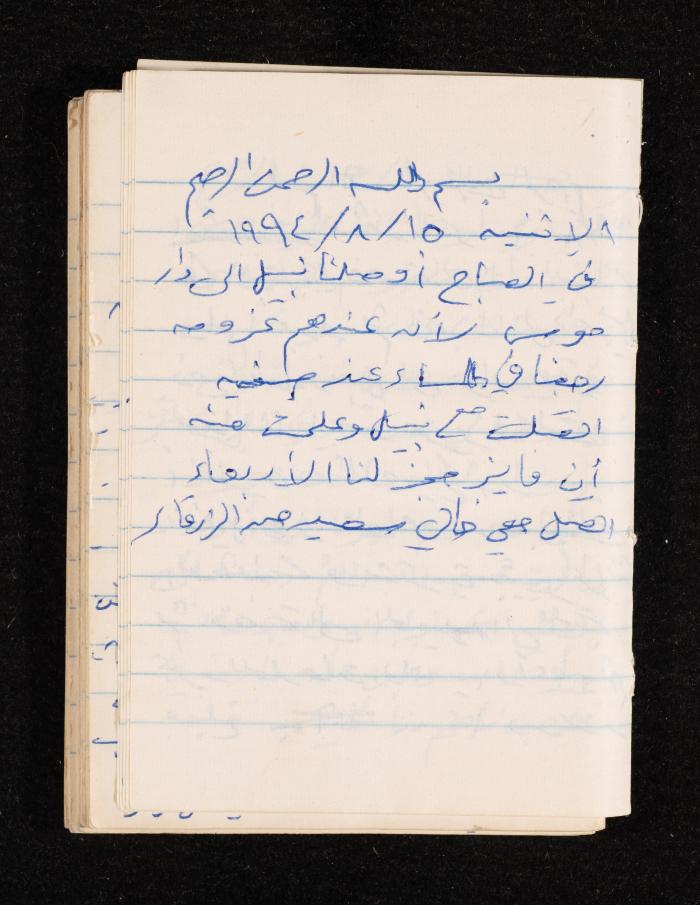 بسم الله الرحمن الرحيم
الاثنين ١٥/٨/١٩٩٤
في الصباح أوصلنا نبيل الى دار
موسى لأنه عندهم عزومه
رجعنا في المساء عند صفيه
اتصلت مع نبيل وعلمت منه
أن فايز حجز لنا الأربعاء
اتصل معي خالي سعيد من الزرقاء